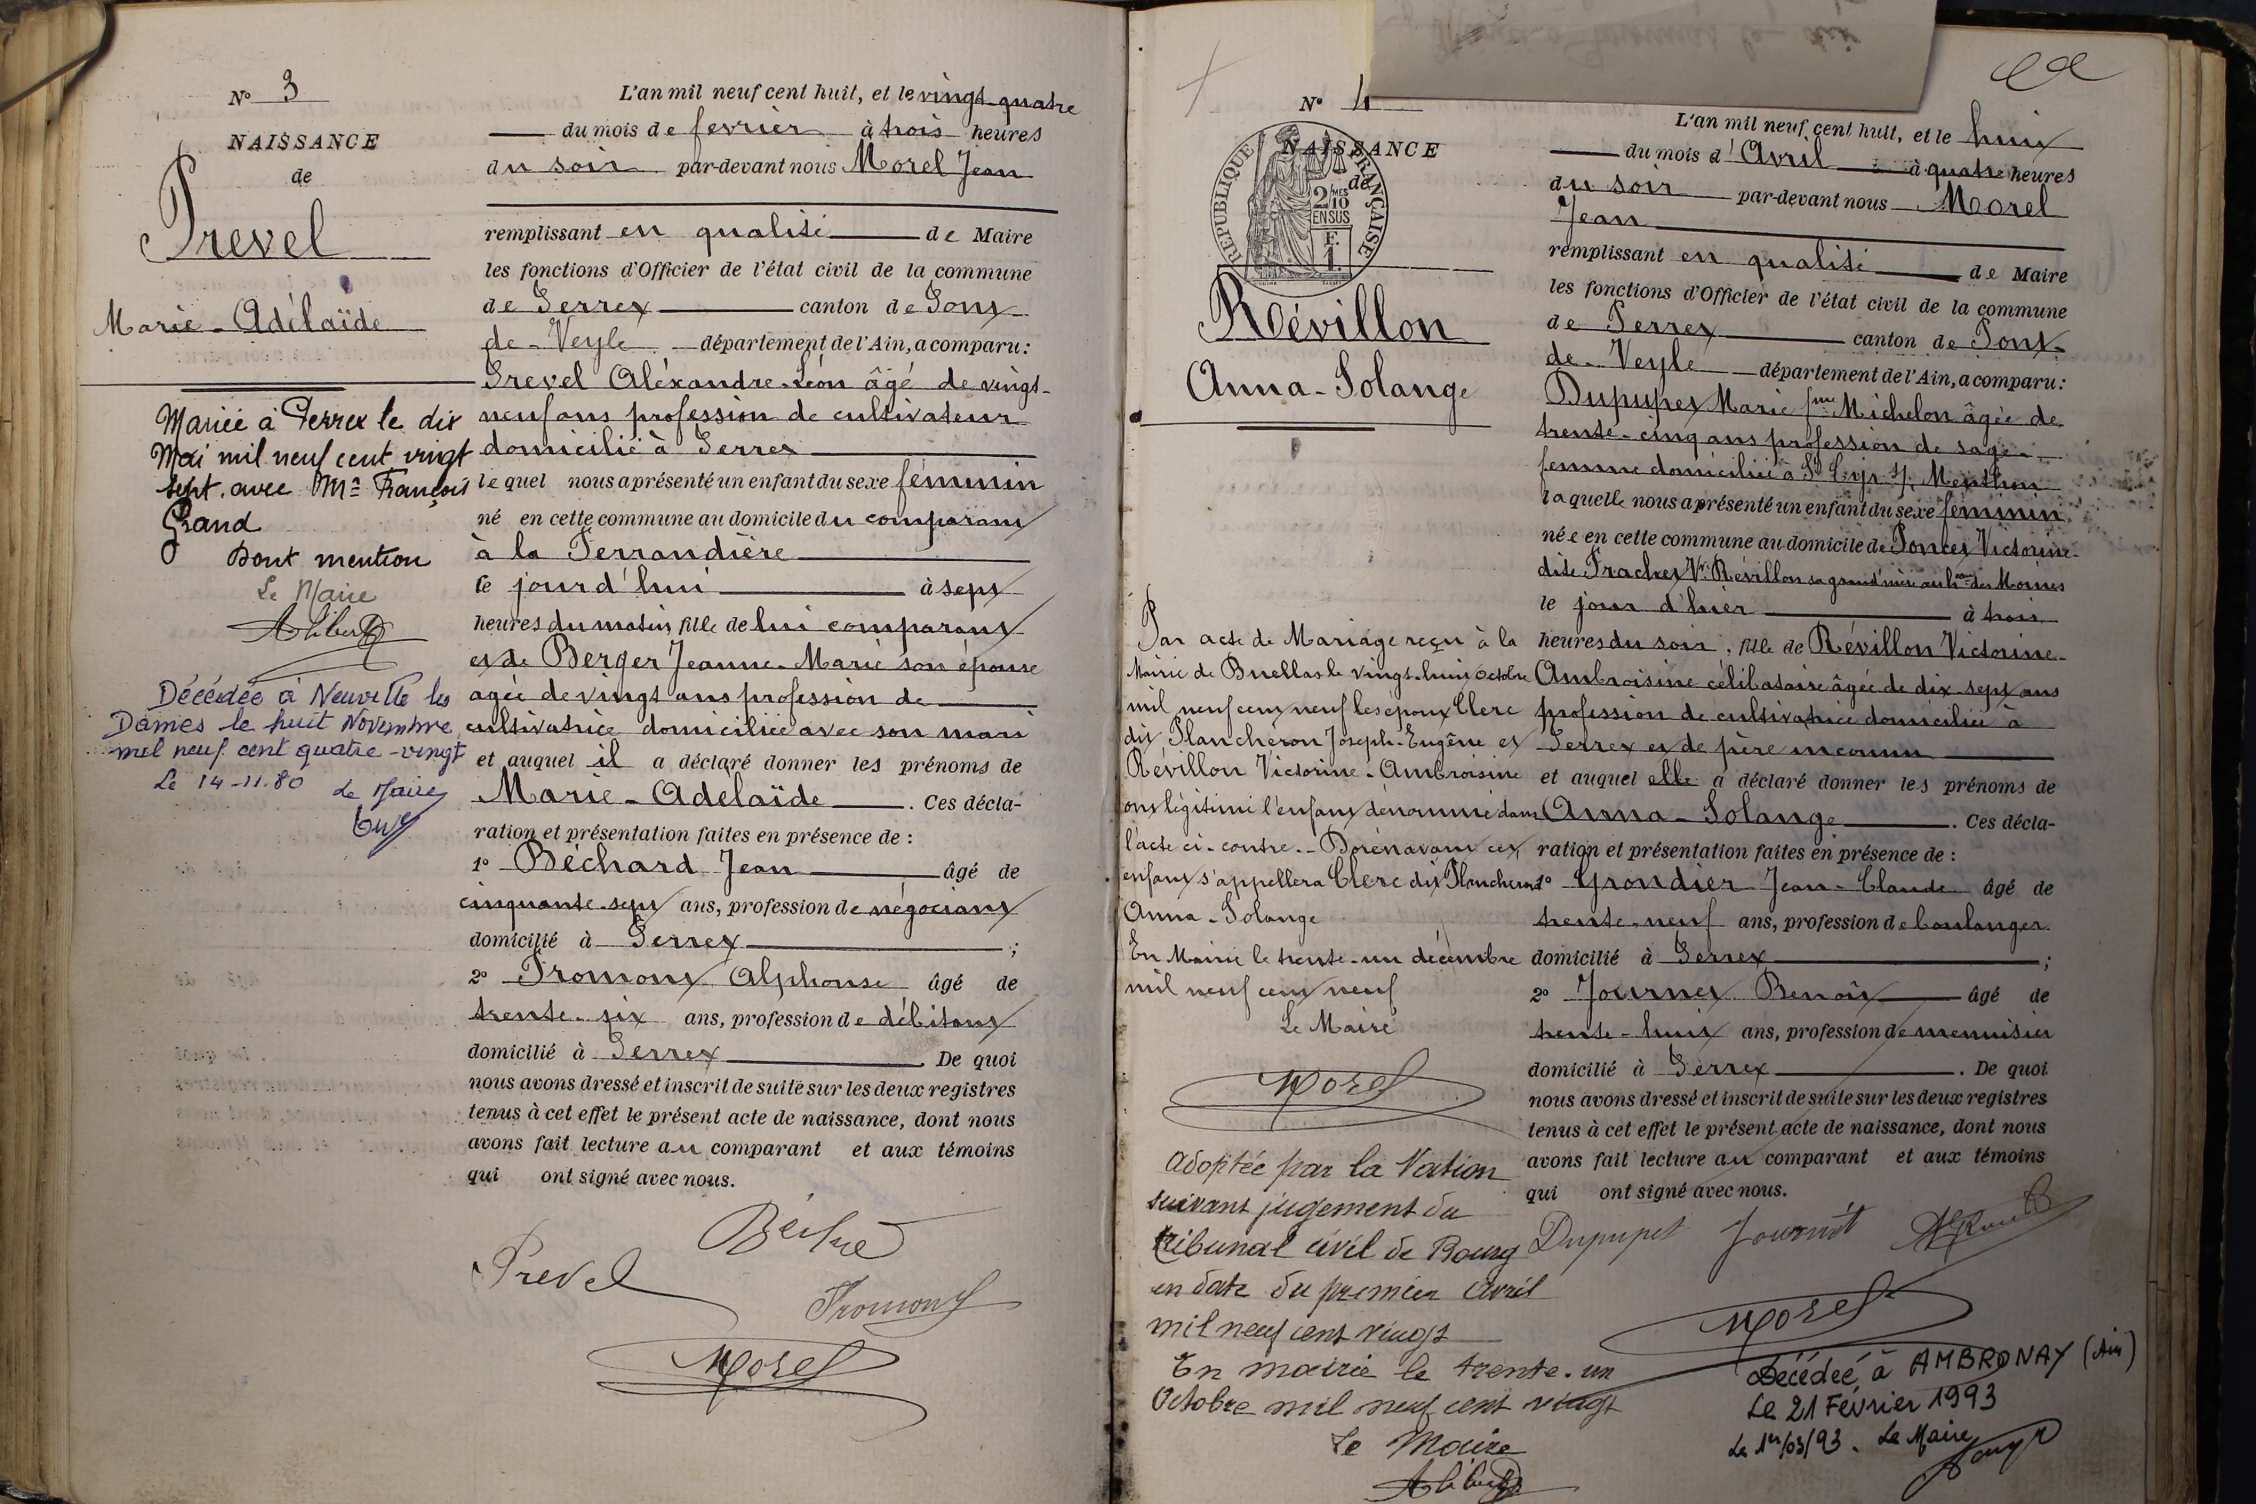 N° 3
NAISSANCE
de
Prevel
Marie-Adélaïde
Mariée à Perrex le dix
Mai mil neuf cent vingt
sept. avec Mr François
Grand
Dont mention
Le Maire
Décédée à Neuville les
Dames le huit Novembre
mil neuf cent quatre-vingt
Le 14-11-80 Le Maire
L'an mil neuf cent huit, et le vingt-quatre
du mois de fevrier à trois heures
du soir par-devant nous Morel Jean
remplissant en qualité de Maire
les fonctions d'Officier de l'état civil de la commune
de Perrex canton de Pont
de-Veyle département de l'Ain, a comparu:
Prevel Aléxandre-Léon âgé de vingt-
neuf ans profession de cultivateur
domicilié à Perrex
le quel nous a présenté un enfant du sexe féminin
né en cette commune au domicile du comparant
à la Ferrandière
le jourd'hui à sept
heures du matin, fille de lui comparant
et de Berger Jeanne-Marie son épouse
agée de vingt ans profession de
cultivatrice domiciliée avec son mari
et auquel il a déclaré donner les prénoms de
Marie-Adelaïde. Ces décla-
ration et présentation faites en présence de :
1° Béchard Jean âgé de
cinquante-sept ans, profession de négociant
domicilié à Perrex ;
2° Fromont Alphonse âgé de
trente-six ans, profession de débitant
domicilié à Perrex. De quoi
nous avons dressé et inscrit de suite sur les deux registres
tenus à cet effet le présent acte de naissance, dont nous
avons fait lecture au comparant et aux témoins
qui ont signé avec nous.
Prevel
Fromont
Morel
N° 4
NAISSANCE
de
REPUBLIQUE FRANÇAISE
2/10
EN SUS
F.
1.
Révillon
Anna-Solange
Par acte de Mariage reçu à la
Mairie de Buellas le vingt-huit octobre
mil neuf cent neuf les époux Clerc
dit Plancheron Joseph-Eugène et
Révillon Victorine-Ambroisine
ont légitimé l'enfant dénommé dans
l'acte ci-contre.- Dorénavant cet
enfant s'appellera Clerc dit Plancheron
Anna-Solange
En Mairie le trente-un décembre
mil neuf cent neuf
Le Maire
Morel
Adoptée par la Nation
suivant jugement du
tribunal civil de Bourg
en date du premier Avril
mil neuf cent vingt
En mairie le trente-un
Octobre mil neuf cent vingt
Le Maire
L'an mil neuf cent huit, et le huit
du mois d'Avril à quatre heures
du soir par-devant nous Morel
Jean
remplissant en qualité de Maire
les fonctions d'Officier de l'état civil de la commune
de Perrex canton de Pont-
de-Veyle département de l'Ain, a comparu:
Dupupet Marie fme Michelon âgée de
trente-cinq ans profession de sage-
femme domiciliée à St Cyr s/ Menthon
laquelle nous a présenté un enfant du sexe féminin
née en cette commune au domicile de Poncet Victorine
dite Trachet Vve Révillon sa grand'mère au hau des Moines
le jour d'hier à trois
heures du soir, fille de Révillon Victorine-
Ambroisine célibataire âgée de dix-sept ans
profession de cultivatrice domiciliée à
Perrex et de père inconnu
et auquel elle a déclaré donner les prénoms de
Anna-Solange. Ces décla-
ration et présentation faites en présence de :
1° Grondier Jean-Claude âgé de
trente-neuf ans, profession de boulanger
domicilié à Perrex ;
2° Journet Benoît âgé de
trente-huit ans, profession de menuisier
domicilié à Perrex. De quoi
nous avons dressé et inscrit de suite sur les deux registres
tenus à cet effet le présent acte de naissance, dont nous
avons fait lecture au comparant et aux témoins
qui ont signé avec nous.
Dupupet Journet
Morel
Décédée à AMBRONAY (Ain)
Le 21 Février 1993
Le 1er/03/93. Le Maire